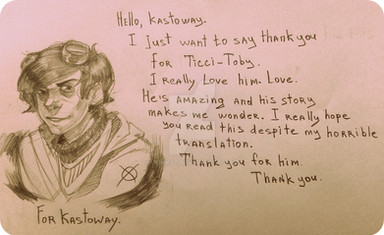 Hello, Kastoway.
I just want to say thank you
for Ticci-Toby.
I really Love him. Love.
He's amazing and his story
makes me wonder. I really hope
you read this despite my horrible
translation.
Thank you for him.
Thank you.
For Kastoway.